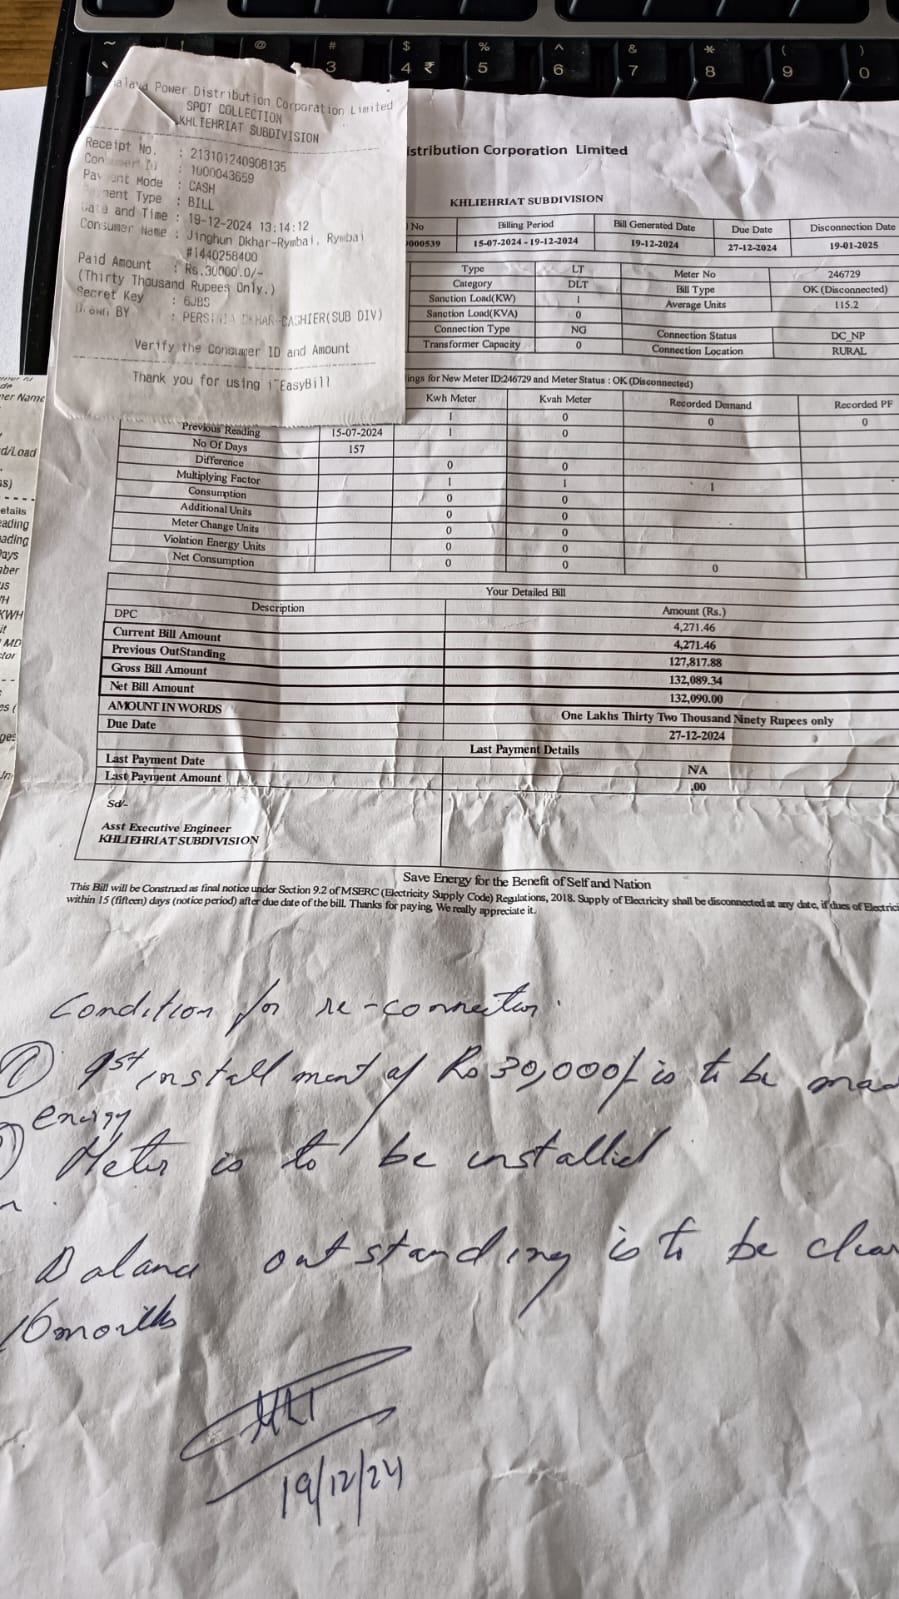 Power Distribution Corporation Limited
SPOT COLLECTION
KHLIEHRIAT SUBDIVISION
Receipt No. : 213101240906135
: 1000043659
Mode : CASH
Type : BILL
Date and Time : 19-12-2024 13:14:12
Consumer Name : Jinghun Dkhar-Rymbai, Rymbai
#1440258400
Paid Amount : Rs.30000.0/-
(Thirty Thousand Rupees Only.)
Secret Key : 6JBS
BY : DKHAR-CASHIER(SUB DIV)
Verify the Consumer ID and Amount
Thank you for using EasyBill
stribution Corporation Limited
KHLIEHRIAT SUBDIVISION
No Billing Period Bill Generated Date Due Date Disconnection Date
000539 15-07-2024 - 19-12-2024 19-12-2024 27-12-2024 19-01-2025
Type LT Meter No 246729
Category DLT Bill Type OK (Disconnected)
Sanction Load(KW) 1 Average Units 115.2
Sanction Load(KVA) 0
Connection Type NG Connection Status DC_NP
Transformer Capacity 0 Connection Location RURAL
ings for New Meter ID:246729 and Meter Status : OK (Disconnected)
Kwh Meter Kvah Meter Recorded Demand Recorded PF
1 0 0 0
Previous Reading 15-07-2024 1 0
No Of Days 157
Difference 0 0
Multiplying Factor 1 1 1
Consumption 0 0
Additional Units 0 0
Meter Change Units 0 0
Violation Energy Units 0 0
Net Consumption 0 0 0
Your Detailed Bill
Description Amount (Rs.)
DPC 4,271.46
Current Bill Amount 4,271.46
Previous OutStanding 127,817.88
Gross Bill Amount 132,089.34
Net Bill Amount 132,090.00
AMOUNT IN WORDS One Lakhs Thirty Two Thousand Ninety Rupees only
Due Date 27-12-2024
Last Payment Details
Last Payment Date NA
Last Payment Amount .00
Sd/-
Asst Executive Engineer
KHLIEHRIAT SUBDIVISION
Save Energy for the Benefit of Self and Nation
This Bill will be Construed as final notice under Section 9.2 of MSERC (Electricity Supply Code) Regulations, 2018. Supply of Electricity shall be disconnected at any date, if dues of Electrici
within 15 (fifteen) days (notice period) after due date of the bill. Thanks for paying. We really appreciate it.
Condition for re-connection.
① 1st installment of Rs 30,000/- is to be mad
energy
Meter is to be installed
Balance outstanding is to be clear
months
19/12/24